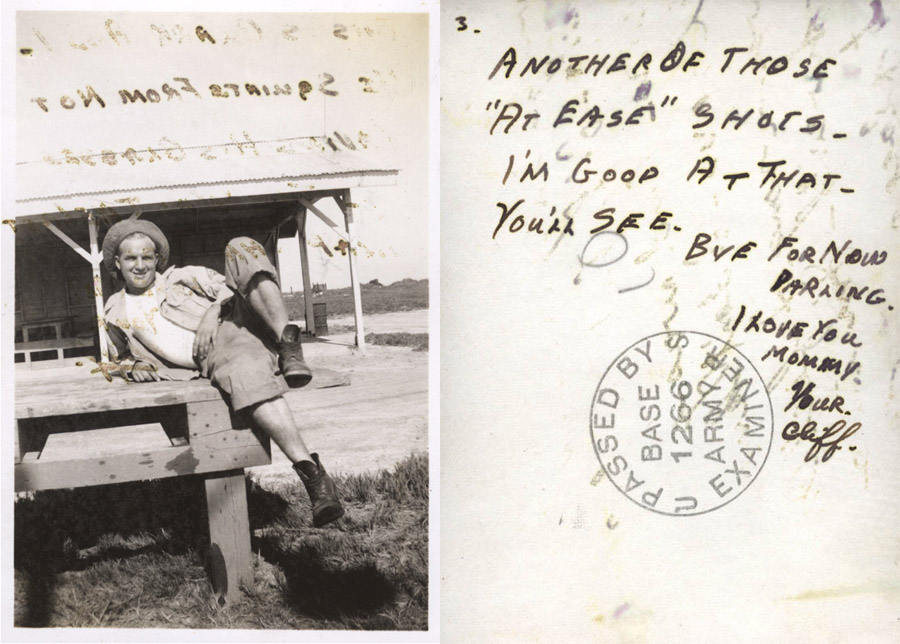 Squints From Not
His Glasses
3.
Another Of Those
"At Ease" Shots -
I'm Good At That -
You'll See.
Bye For Now
Darling.
I Love You
Mommy.
Your.
Cliff.
PASSED BY
U S
BASE
1266
ARMY
EXAMINER